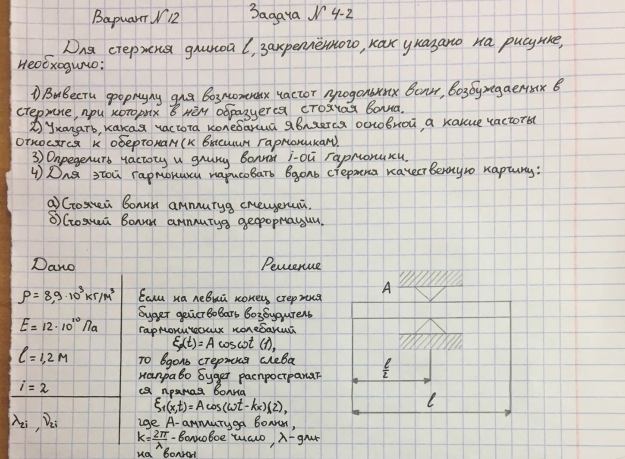 Вариант №12 Задача № 4-2
Для стержня длиной l, закреплённого, как указано на рисунке,
необходимо:
1) Вывести формулу для возможных частот продольных волн, возбуждаемых в
стержне, при которых в нём образуется стоячая волна.
2) Указать, какая частота колебаний является основной, а какие частоты
относятся к обертонам (к высшим гармоникам).
3) Определить частоту и длину волны i-ой гармоники.
4) Для этой гармоники нарисовать вдоль стержня качественную картину:
а) Стоячей волны амплитуд смещений.
б) Стоячей волны амплитуд деформации.
Дано
ρ = 8,9·10³ кг/м³
E = 12·10¹⁰ Па
l = 1,2 м
i = 2
λ₂ᵢ, ν₂ᵢ
Решение
Если на левый конец стержня
будет действовать возбудитель
гармонических колебаний
ξ(t) = A cos ωt (1),
то вдоль стержня слева
направо будет распространят-
ся прямая волна
ξ₁(x,t) = A cos(ωt - kx) (2),
где A - амплитуда волны,
k = 2π/λ - волновое число, λ - дли-
на волны
A
l/2
l